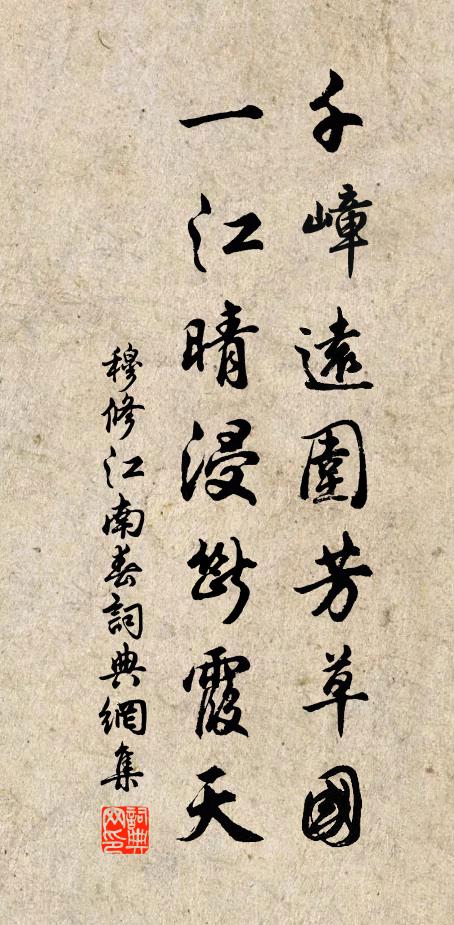 千嶂遠圍芳草國
一江晴浸斷霞天
穆修江南春詞典網集
詞典網印